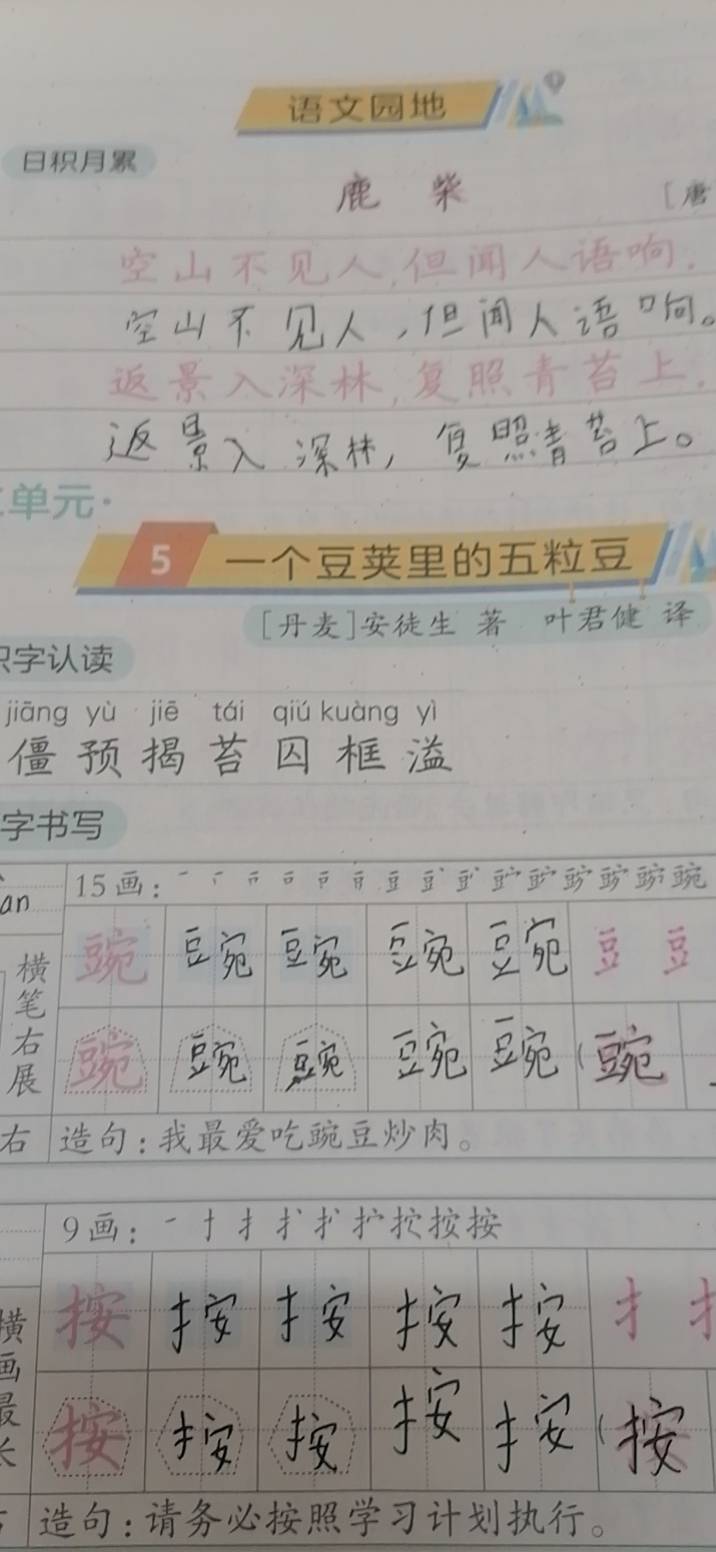 语文园地
日积月累
鹿 柴
[唐
空山不见人,但闻人语响.
空山不见人,但闻人语响。
返景入深林,复照青苔上.
返景入深林,复照青苔上。
单元·
5 一个豆荚里的五粒豆
[丹麦]安徒生 著 叶君健 译
识字认读
jiāng yù jiē tái qiú kuàng yì
僵 预 揭 苔 囚 框 溢
字书写
an
15画:
横笔右展
豌 豌 豌 豌 豌 豆 豆
豌 豌 豌 豌 豌 (豌
右 造句:我最爱吃豌豆炒肉。
9画:
横画最长
按 按 按 按 按 扌 扌
按 按 按 按 按 (按
造句:请务必按照学习计划执行。